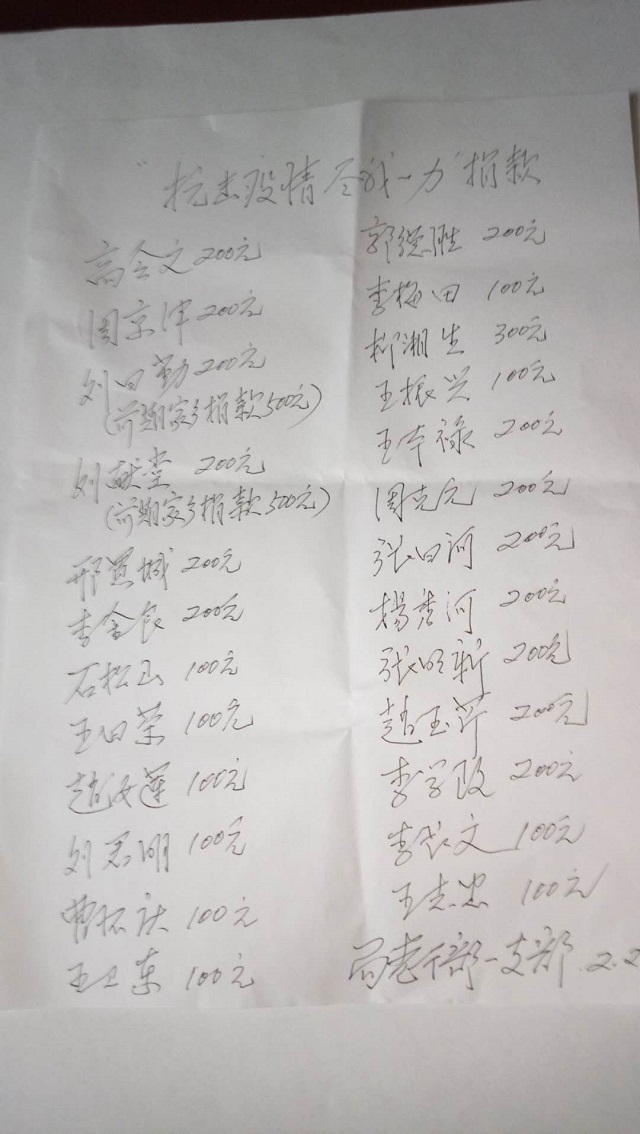 "抗击疫情尽我一力"捐款
高金文 200元
周京津 200元
刘田勤 200元
(前期家乡捐款500元)
刘献堂 200元
(前期家乡捐款500元)
邢置城 200元
李金良 200元
石松山 100元
王伯荣 100元
赵汝莲 100元
刘君明 100元
曹怀庆 100元
王卫东 100元
郭德胜 200元
李梅田 100元
柳湘生 300元
王振兴 100元
王本禄 200元
周克元 200元
张白河 200元
杨秀河 200元
张明新 200元
赵玉芹 200元
李学政 200元
李长文 100元
王志忠 100元
局老干部一支部 2.2